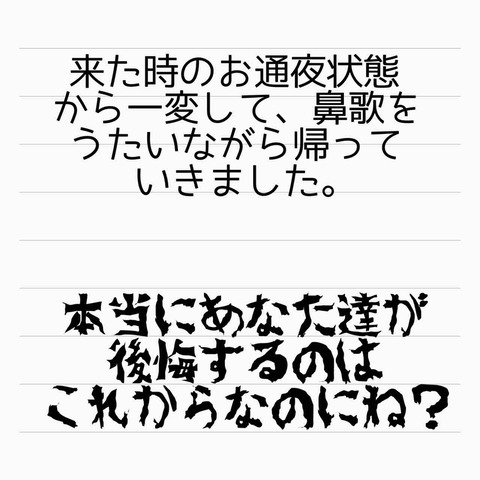 来た時のお通夜状態
から一変して、鼻歌を
うたいながら帰って
いきました。
本当にあなた達が
後悔するのは
これからなのにね？